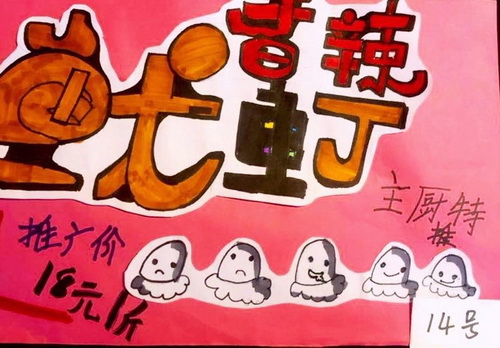 香辣
鱿鱼丁
主厨特
推
推广价
18元1斤
14号